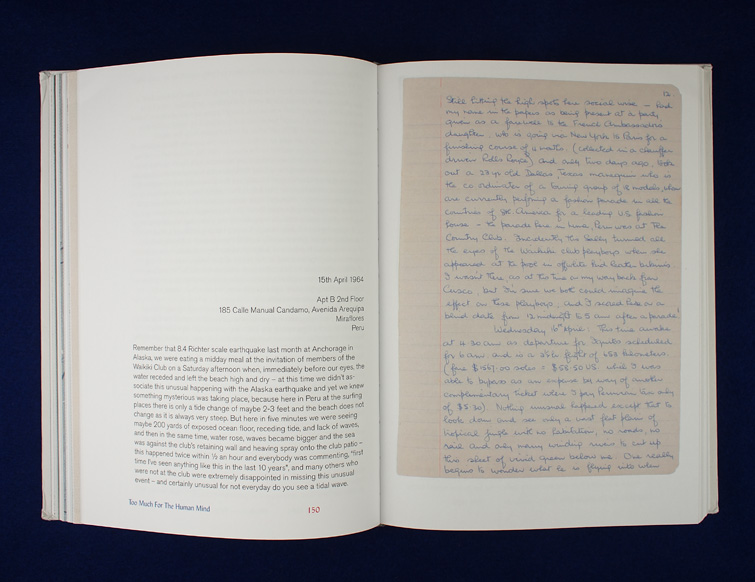 15th April 1964
Apt B 2nd Floor
185 Calle Manual Candamo, Avenida Arequipa
Miraflores
Peru
Remember that 8.4 Richter scale earthquake last month at Anchorage in
Alaska, we were eating a midday meal at the invitation of members of the
Waikiki Club on a Saturday afternoon when, immediately before our eyes, the
water receded and left the beach high and dry – at this time we didn't as-
sociate this unusual happening with the Alaska earthquake and yet we knew
something mysterious was taking place, because here in Peru at the surfing
places there is only a tide change of maybe 2-3 feet and the beach does not
change as it is always very steep. But here in five minutes we were seeing
maybe 200 yards of exposed ocean floor, receding tide, and lack of waves,
and then in the same time, water rose, waves became bigger and the sea
was against the club's retaining wall and heaving spray onto the club patio –
this happened twice within ½ an hour and everybody was commenting, "first
time I've seen anything like this in the last 10 years", and many others who
were not at the club were extremely disappointed in missing this unusual
event – and certainly unusual for not everyday do you see a tidal wave.
Too Much For The Human Mind
150
12.
Still hitting the high spots here social wise – had
my name in the papers as being present at a party
given as a farewell to the French Ambassadors
daughter who is going via New York to Paris for a
finishing course of 4 months (collected in a chauffeur
driven Rolls Royce) and only two days ago, took
out a 23 yr old Dallas, Texas mannequin who is
the co ordinator of a touring group of models, whom
are currently performing a fashion parade in all the
countries of Sth. America for a leading U.S. fashion
house – the parade here in Lima, Peru was at The
Country Club. Incidently this Sally turned all
the eyes of the Waikiki club playboys when she
appeared at the pool in
I wasn't there as at the time on my way back from
Cusco, but I'm sure we both could imagine the
effect on these playboys, and I
date from 12 midnight to 5 am after a parade!
Wednesday 16th April. This time awake
at 4.30 am as departure for Iquitos scheduled
for 6 am and is a flight of kilometers.
able to bypass as an expense by way of another
complimentary ticket
Nothing unusual happened except that to
look down and see only a vast flat plain of
tropical jungle with no habitation, no roads, no
and only many winding rivers to cut up
this sheet of vivid green below me. One really
begins to wonder what he is flying into when